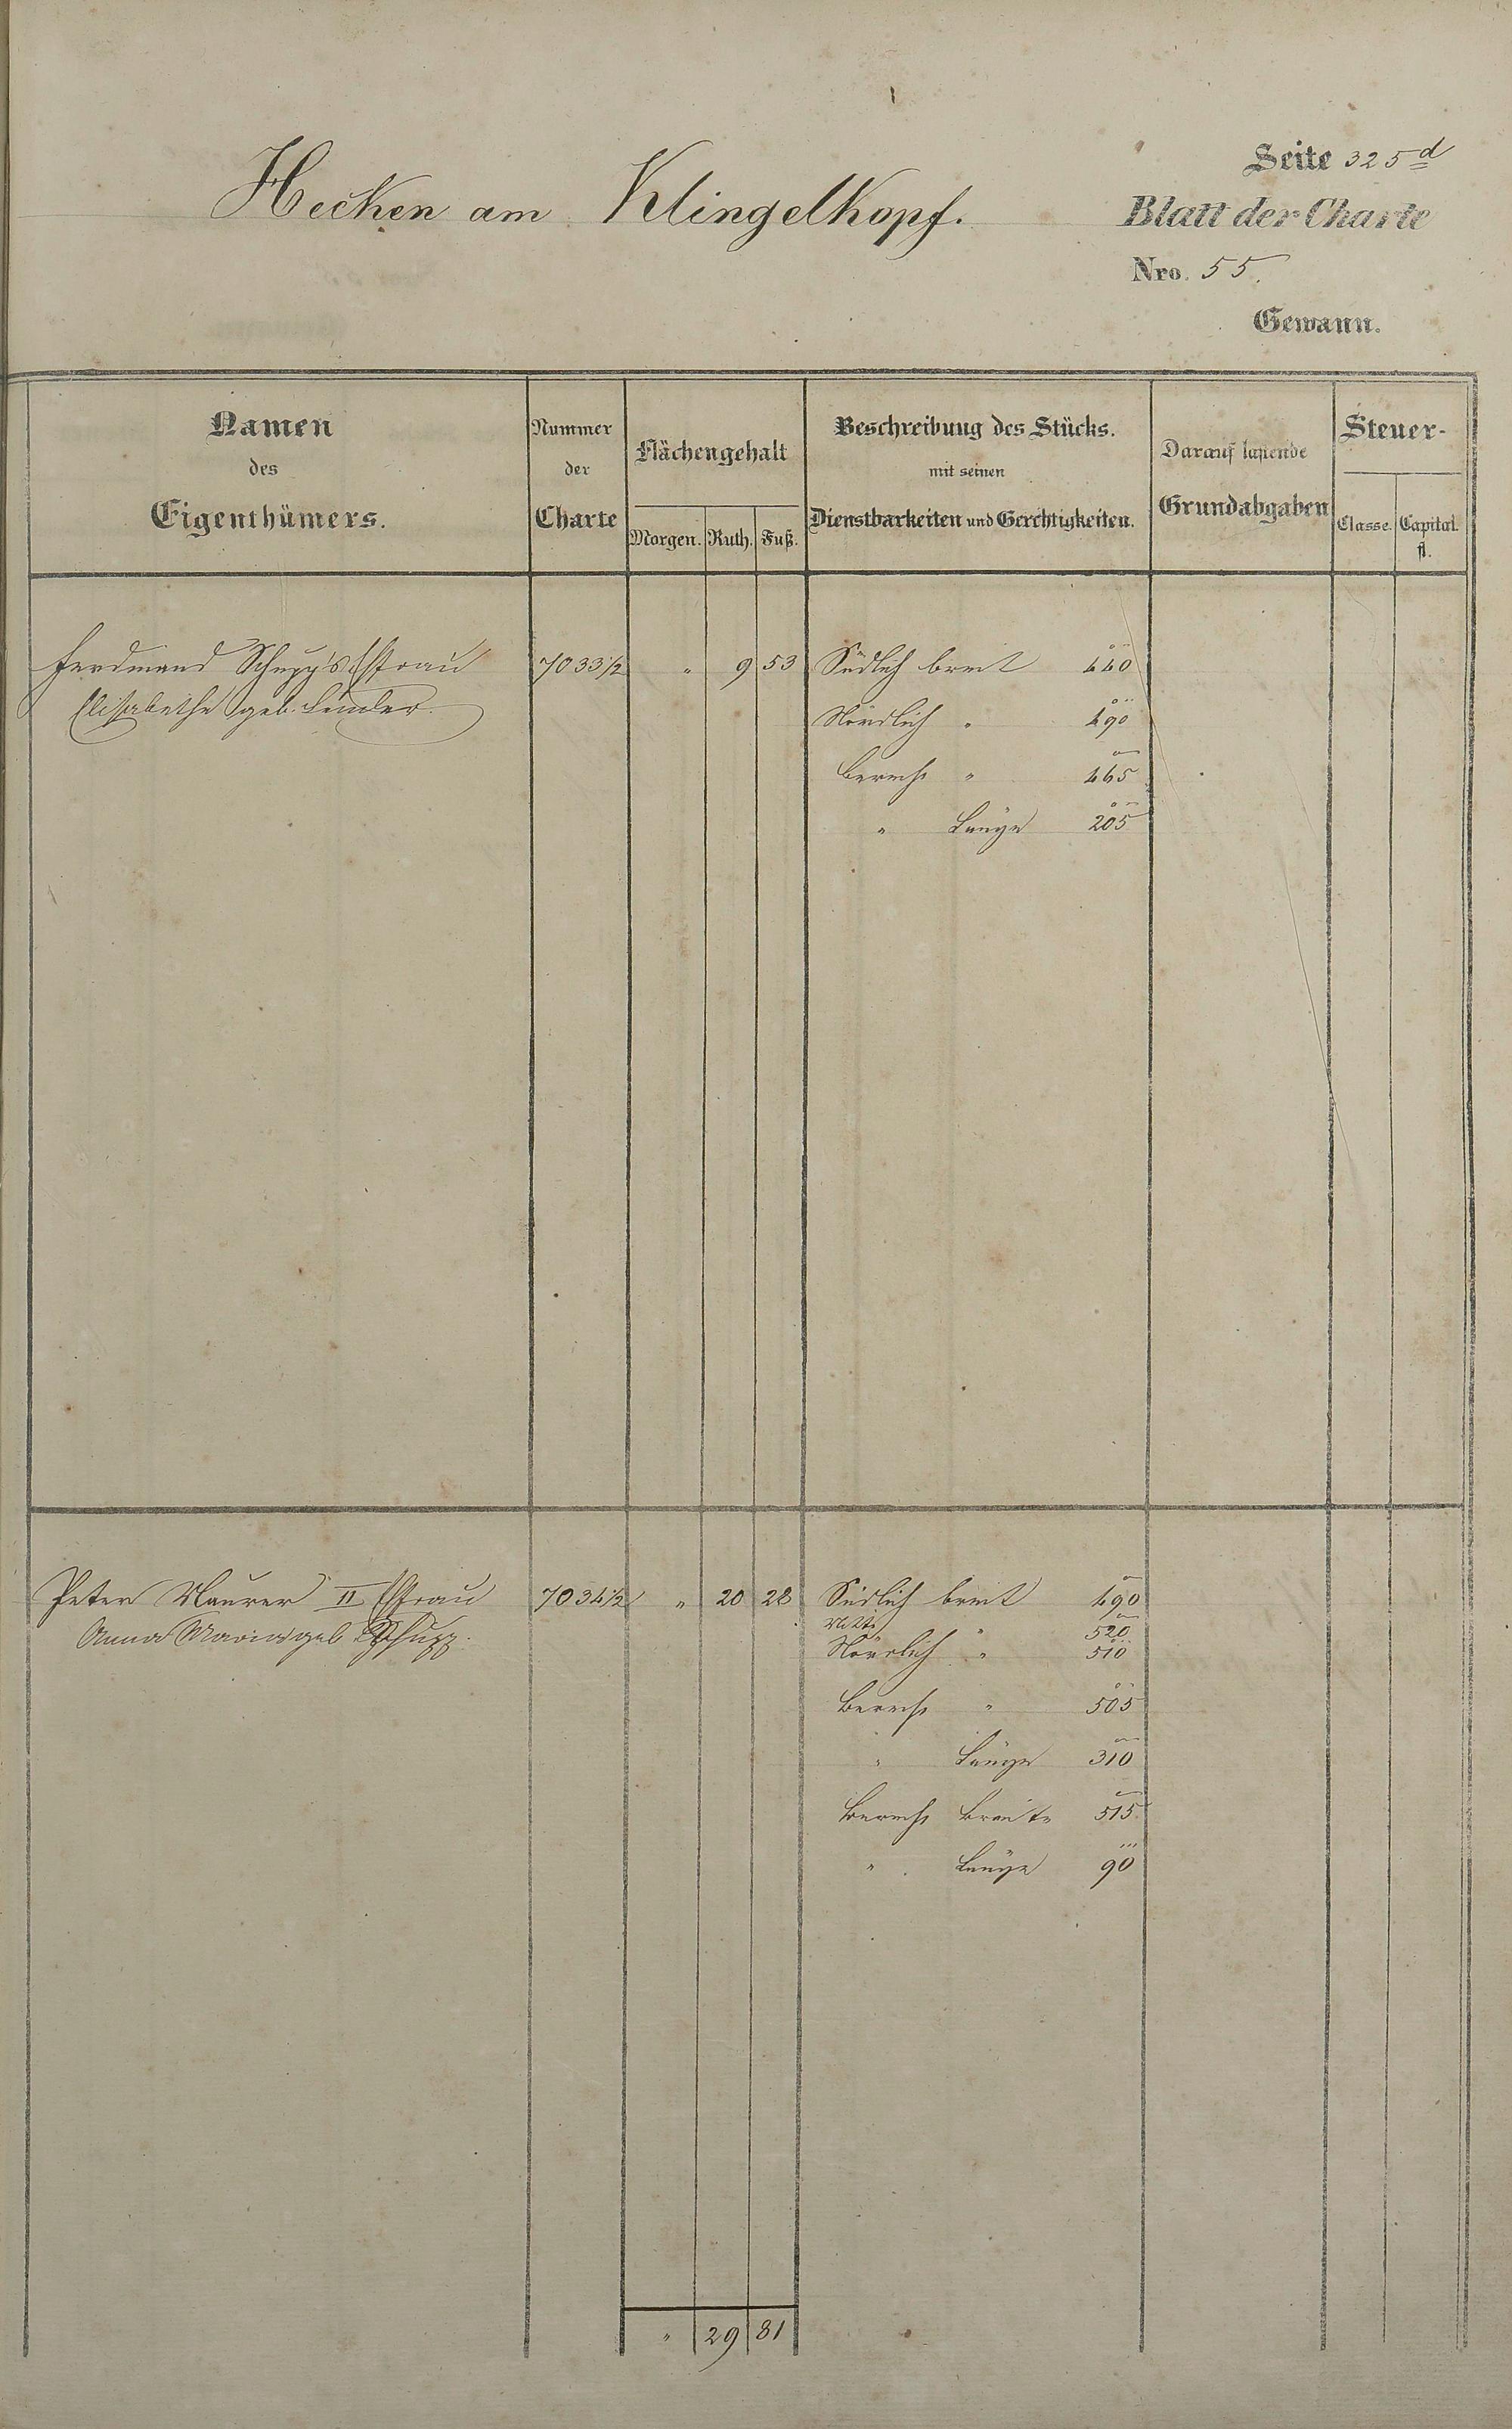 Seite 325d
Hecken am Klingelkopf.
Blatt der Charte
Nro. 55.
Gewann.
Namen
des
Eigenthümers.
Nummer
der
Charte
Flächengehalt
Morgen. Ruth. Fuß.
Beschreibung des Stücks.
mit seinen
Dienstbarkeiten und Gerechtigkeiten.
Darauf lastende
Grundabgaben
Steuer-
Classe. Capital.
fl.
Ferdinand Schupp's Ehfrau 7033½ " 9 53 Südlich breit 440
Elisabethe geb.
Nördlich " 490
Berechn " 465
" Länge 205
Peter Maurer II Ehfrau 7034½ " 20 28 Südlich breit 490
Mitte " 520
Anna Maria geb. Schupp.
Nördlich " 510
Berechn " 505
" Länge 310
Berechn Breite 515
" Länge 90
" 29 81